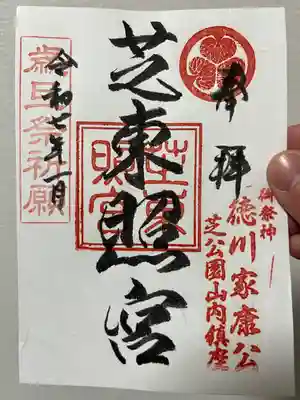 御祭神
徳川家康公
芝公園山内鎮座
奉拝
芝東照宮
芝東
照宮
令和七年一月
歳旦祭祈願